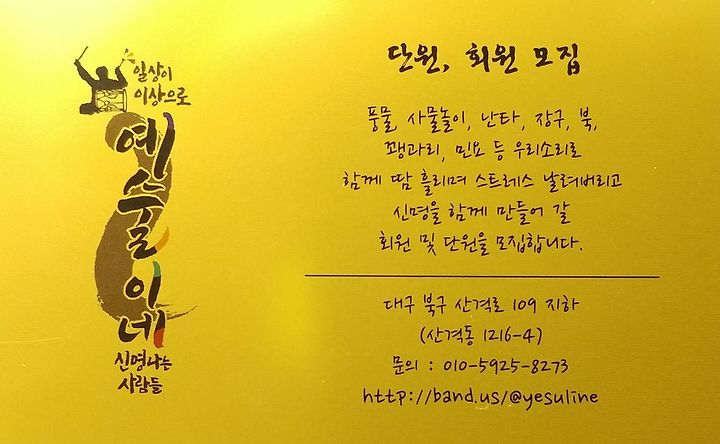 일상이
이상으로
예술이네
신명나는
사람들
단원, 회원 모집
풍물, 사물놀이, 난타, 장구, 북,
꽹과리, 민요 등 우리소리로
함께 땀 흘리며 스트레스 날려버리고
신명을 함께 만들어 갈
회원 및 단원을 모집합니다.
대구 북구 산격로 109 지하
(산격동 1216-4)
문의 : 010-5925-8273
http://band.us/@yesuline